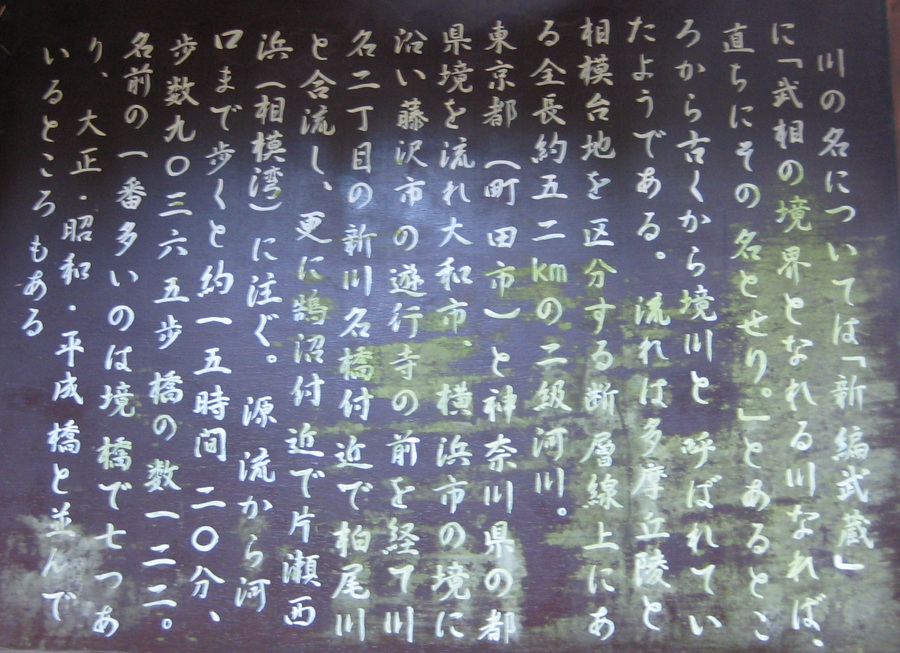 川の名については「新編武蔵」
に「武相の境界となれる川なれば、
直ちにその名とせり。」とあるとこ
ろから古くから境川と呼ばれてい
たようである。流れは多摩丘陵と
相模台地を区分する断層線上にあ
る全長約五二kmの二級河川。
東京都(町田市)と神奈川県の都
県境を流れ大和市、横浜市の境に
沿い藤沢市の遊行寺の前を経て川
名二丁目の新川名橋付近で柏尾川
と合流し、更に鵠沼付近で片瀬西
浜(相模湾)に注ぐ。源流から河
口まで歩くと約一五時間二〇分、
歩数九〇三六五歩橋の数一二二。
名前の一番多いのは境橋で七つあ
り、大正・昭和・平成橋と並んで
いるところもある